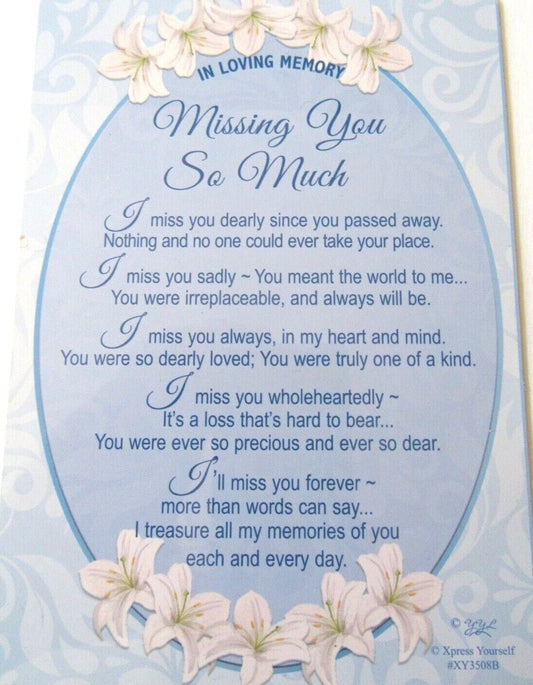 IN LOVING MEMORY
Missing You
So Much
I miss you dearly since you passed away.
Nothing and no one could ever take your place.
I miss you sadly ~ You meant the world to me...
You were irreplaceable, and always will be.
I miss you always, in my heart and mind.
You were so dearly loved; You were truly one of a kind.
I miss you wholeheartedly ~
It's a loss that's hard to bear...
You were ever so precious and ever so dear.
I'll miss you forever ~
more than words can say...
I treasure all my memories of you
each and every day.
©
© Xpress Yourself
#XY3508B